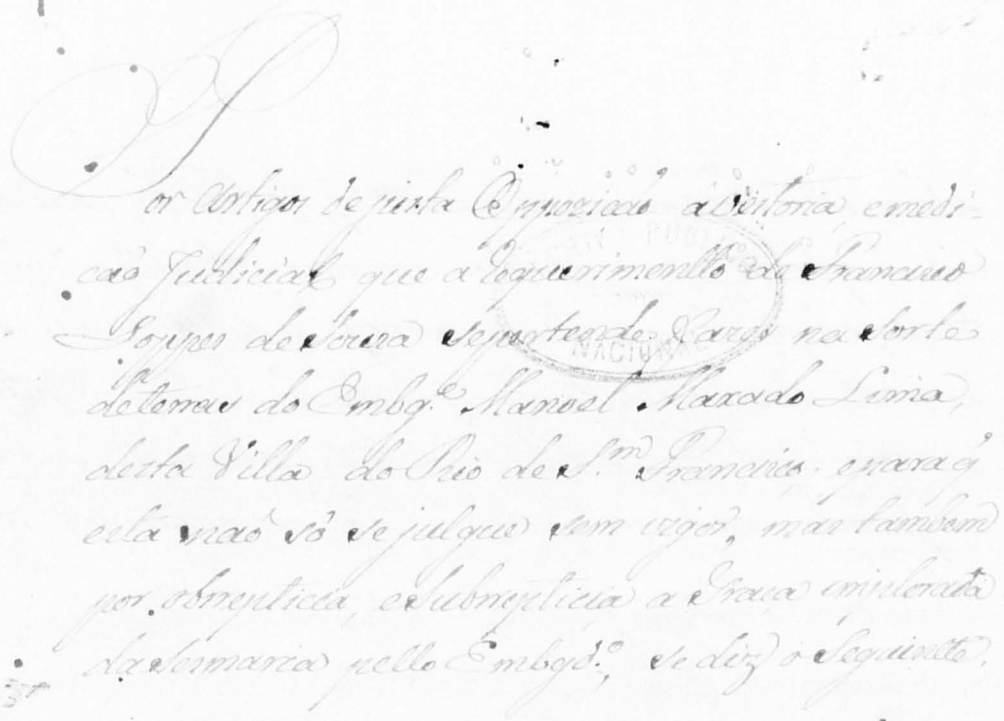 Por Artigos de justa Oppozicaõ a vestoria, e medi-
caõ Judicial que a Requerimentto de Francisco
Loppes de Souza se pertende Fazer na Sorte
de terras do Embg.e Manoel Maxado Lima,
desta Villa do Rio de S.m Francisco. e para q̃
esta naõ só se julgue sem vigor, mas tambem
por obrepticia, e Subrepticia a Graça implorada
da Sesmaria pello Embgd.o, se diz o Seguintte.
PUBL
NACIONAL